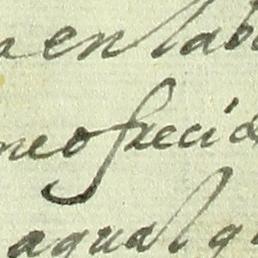 a en la
me ofrecid
aqual q